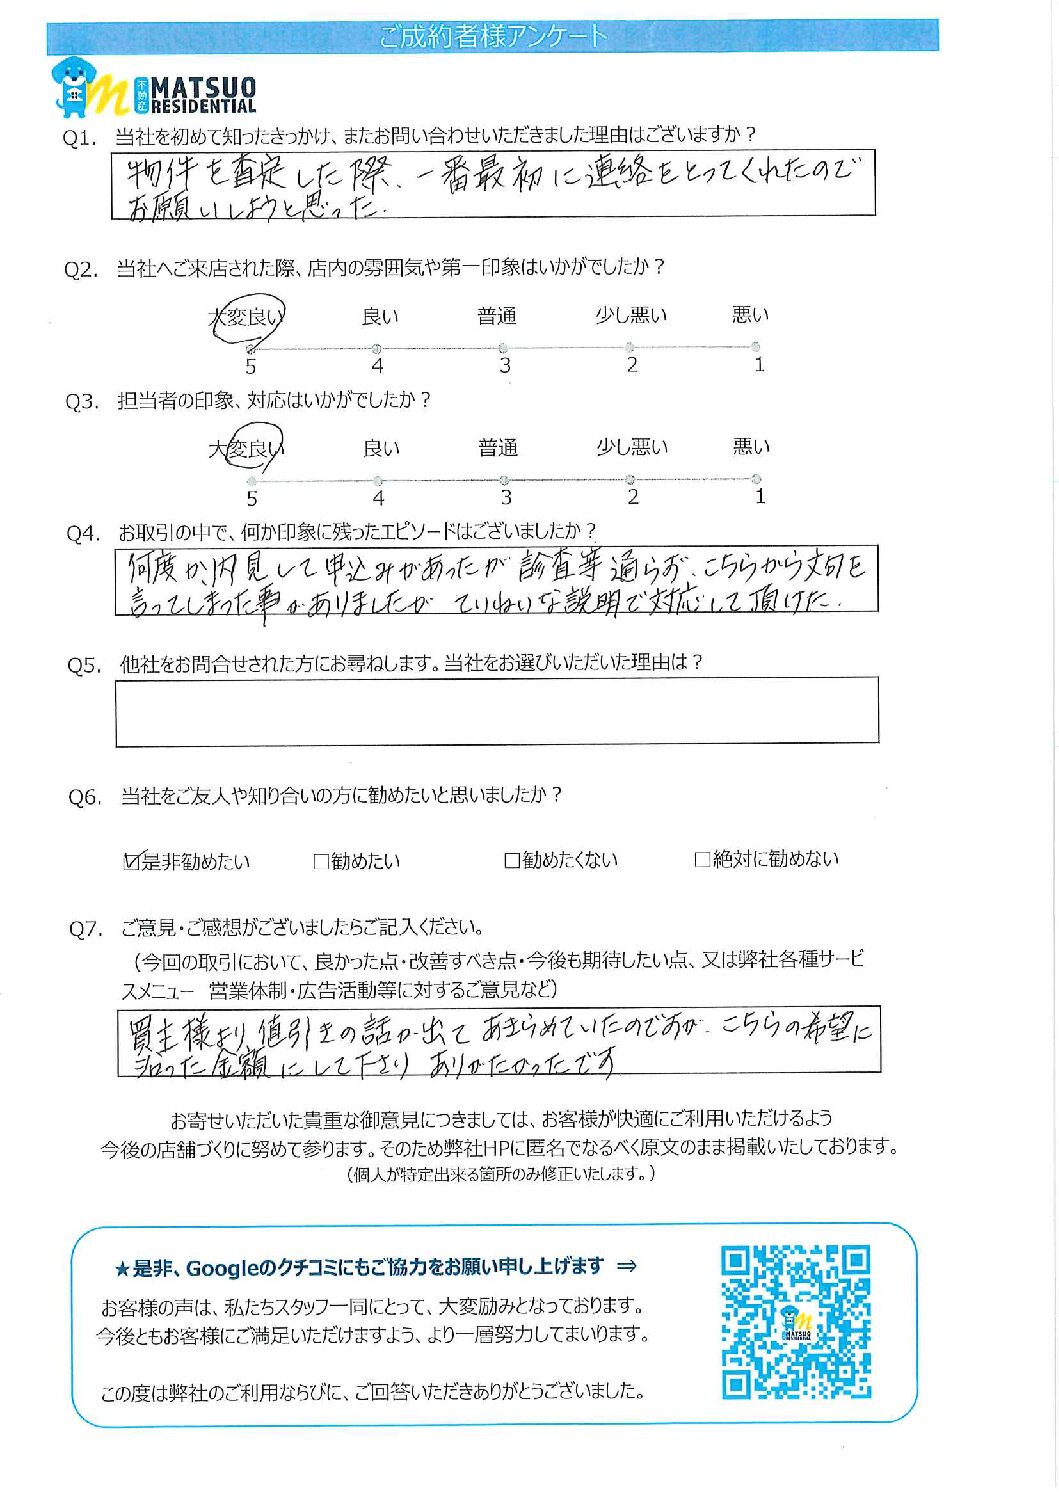 ご成約者様アンケート
不動産 MATSUO
RESIDENTIAL
Q1. 当社を初めて知ったきっかけ、またお問い合わせいただきました理由はございますか？
物件を査定した際、一番最初に連絡をとってくれたので
お願いしようと思った.
Q2. 当社へご来店された際、店内の雰囲気や第一印象はいかがでしたか？
大変良い 良い 普通 少し悪い 悪い
5 4 3 2 1
Q3. 担当者の印象、対応はいかがでしたか？
大変良い 良い 普通 少し悪い 悪い
5 4 3 2 1
Q4. お取引の中で、何か印象に残ったエピソードはございましたか？
何度か、内見して申込みがあったが診査等通らず、こちらから文句を
言ってしまった事がありましたが ていねいな説明で対応して頂けた.
Q5. 他社をお問合せされた方にお尋ねします。当社をお選びいただいた理由は？
Q6. 当社をご友人や知り合いの方に勧めたいと思いましたか？
☑是非勧めたい □勧めたい □勧めたくない □絶対に勧めない
Q7. ご意見・ご感想がございましたらご記入ください。
（今回の取引において、良かった点・改善すべき点・今後も期待したい点、又は弊社各種サービ
スメニュー 営業体制・広告活動等に対するご意見など）
買主様より値引きの話が出て あきらめていたのですが、こちらの希望に
沿った金額にして下さり ありがたかったです
お寄せいただいた貴重な御意見につきましては、お客様が快適にご利用いただけるよう
今後の店舗づくりに努めて参ります。そのため弊社HPに匿名でなるべく原文のまま掲載いたしております。
（個人が特定出来る箇所のみ修正いたします。）
★是非、Googleのクチコミにもご協力をお願い申し上げます ⇒
お客様の声は、私たちスタッフ一同にとって、大変励みとなっております。
今後ともお客様にご満足いただけますよう、より一層努力してまいります。
この度は弊社のご利用ならびに、ご回答いただきありがとうございました。
MATSUO
RESIDENTIAL